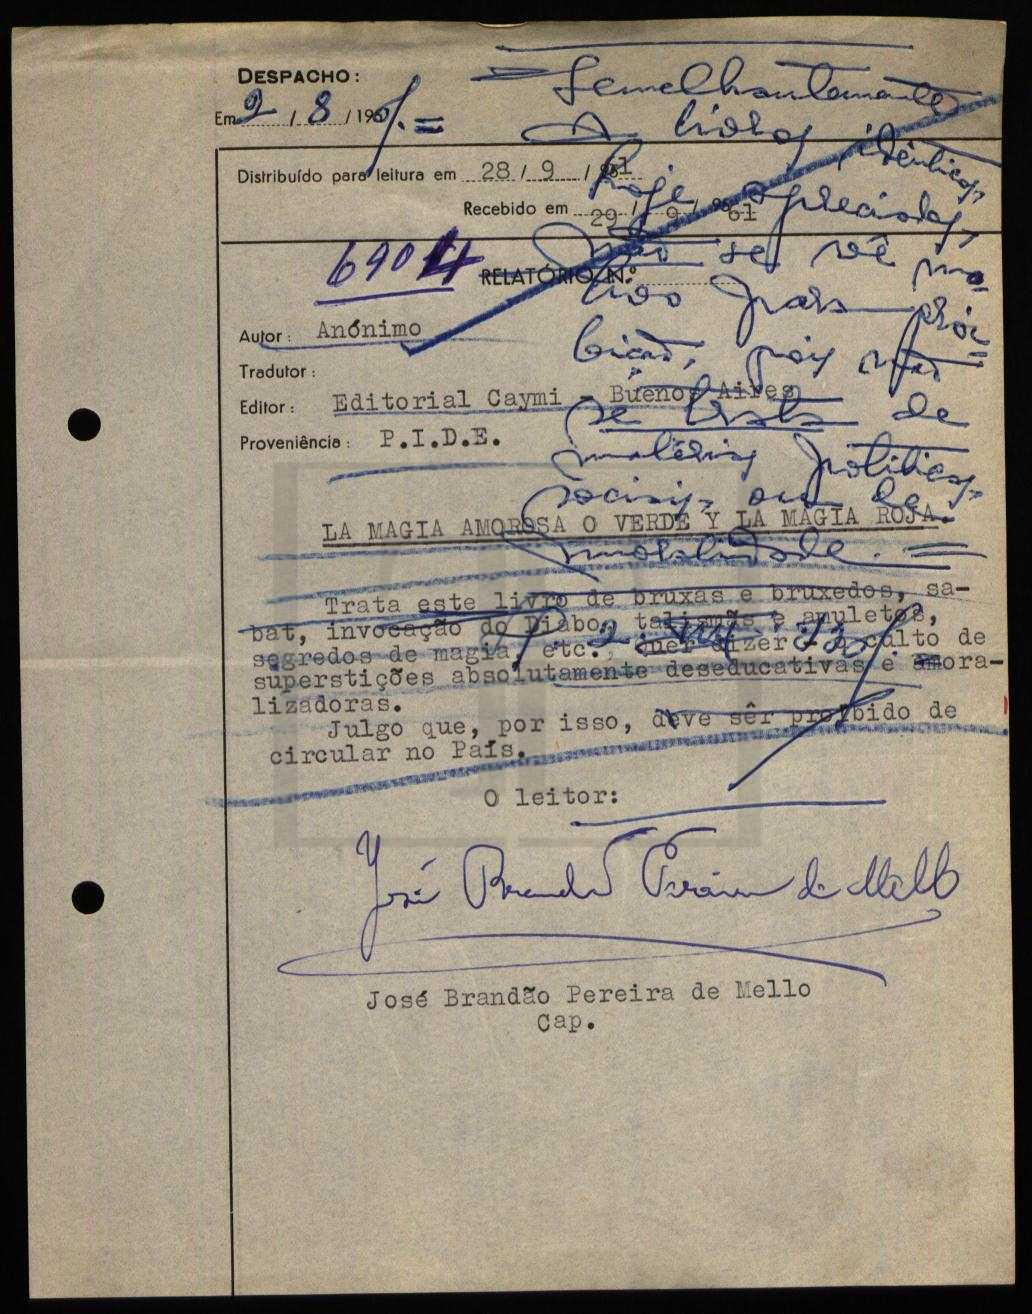 DESPACHO:
Em 2 / 8 / 196
Semelhantemente
A livros idênticos,
hoje apreciados,
não se vê mo-
tivo para proi-
bição, pois não
se trata de
matérias políticas,
sociais, ou de
moralidade. =
Distribuído para leitura em 28 / 9 / 961
Recebido em 29 / 9 / 961
6904 RELATÓRIO N.º
Autor: Anónimo
Tradutor:
Editor: Editorial Caymi - Buenos Aires
Proveniência: P.I.D.E.
LA MAGIA AMOROSA O VERDE Y LA MAGIA ROJA.
Trata este livro de bruxas e bruxedos, sa-
bat, invocação do Diabo, talismãs e amuletos,
segredos de magia, etc., quer dizer o culto de
superstições absolutamente deseducativas e amora-
lizadoras.
Julgo que, por isso, deve sêr proibido de
circular no País.
O leitor:
José Brandão Pereira de Mello
José Brandão Pereira de Mello
Cap.